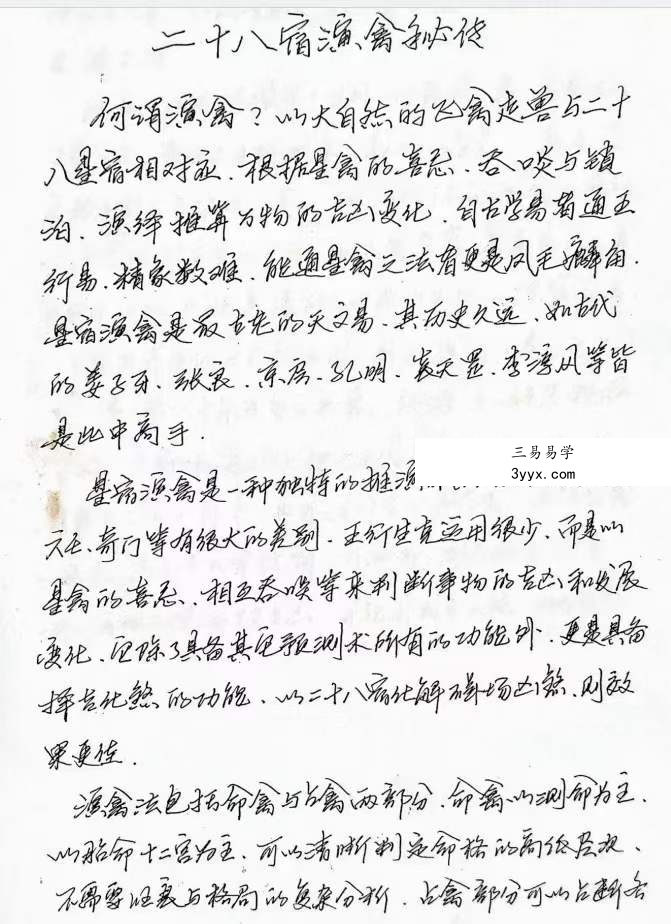 二十八宿演禽秘传
何谓演禽？以大自然的飞禽走兽与二十
八星宿相对应、根据星禽的喜忌、吞啖与锁
泊、演绎推算万物的吉凶变化、自古学易者通五
行易、精象数难、能通星禽之法者更是凤毛麟角.
星宿演禽是最古老的天文易、其历史久远、如古代
的姜子牙、张良、京房、孔明、袁天罡、李淳风等皆
是此中高手.
三易易学
3yyx.com
星宿演禽是一种独特的推演
六壬、奇门等有很大的差别、五行生克运用很少、而是以
星禽的喜忌、相互吞啖等来判断事物的吉凶和发展
变化、它除了具备其它预测术所有的功能外、更是具备
择吉化煞的功能、以二十八宿化解磁场凶煞、则效
果更佳.
演禽法包括命禽与占禽两部分、命禽以测命为主、
以胎命十二宫为主、可以清晰判定命格的高低层次、
不需要旺衰与格局的复杂分析、占禽部分可以占断各